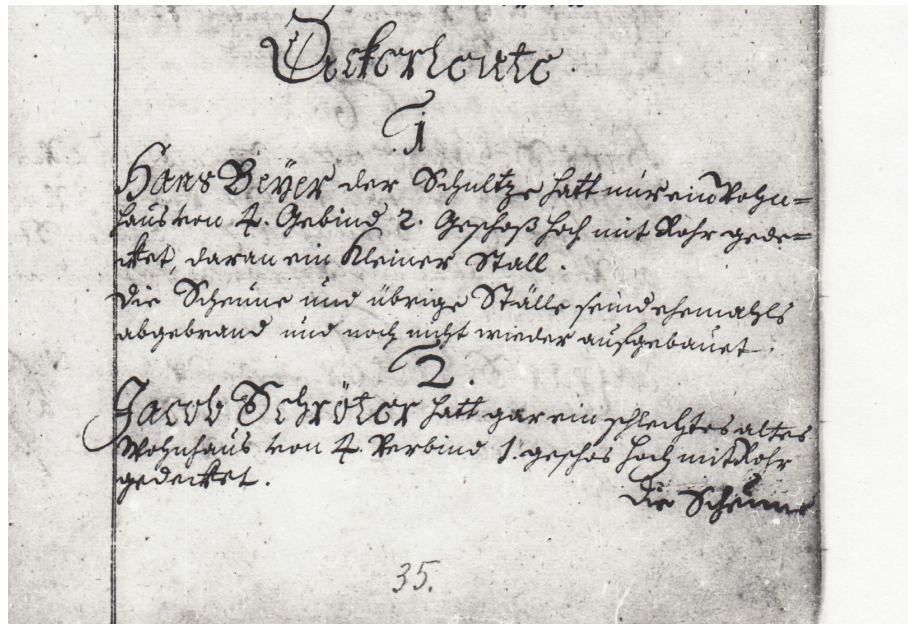 Ackerleute
1
Hans Beÿer der Schultze hatt nur ein Wohn=
haus von 4. Gebind 2. Geschoß hoch mit Rohr gede=
cket, daran ein Kleiner Stall.
Die Scheune und übrige Ställe seind ehemahls
abgebrand und noch nicht wieder aufgebauet.
2.
Jacob Schröter hatt gar ein schlechtes altes
Wohnhaus von 4. Verbind 1. geschos hoch mit Rohr
gedecket.
Die Scheune
35.